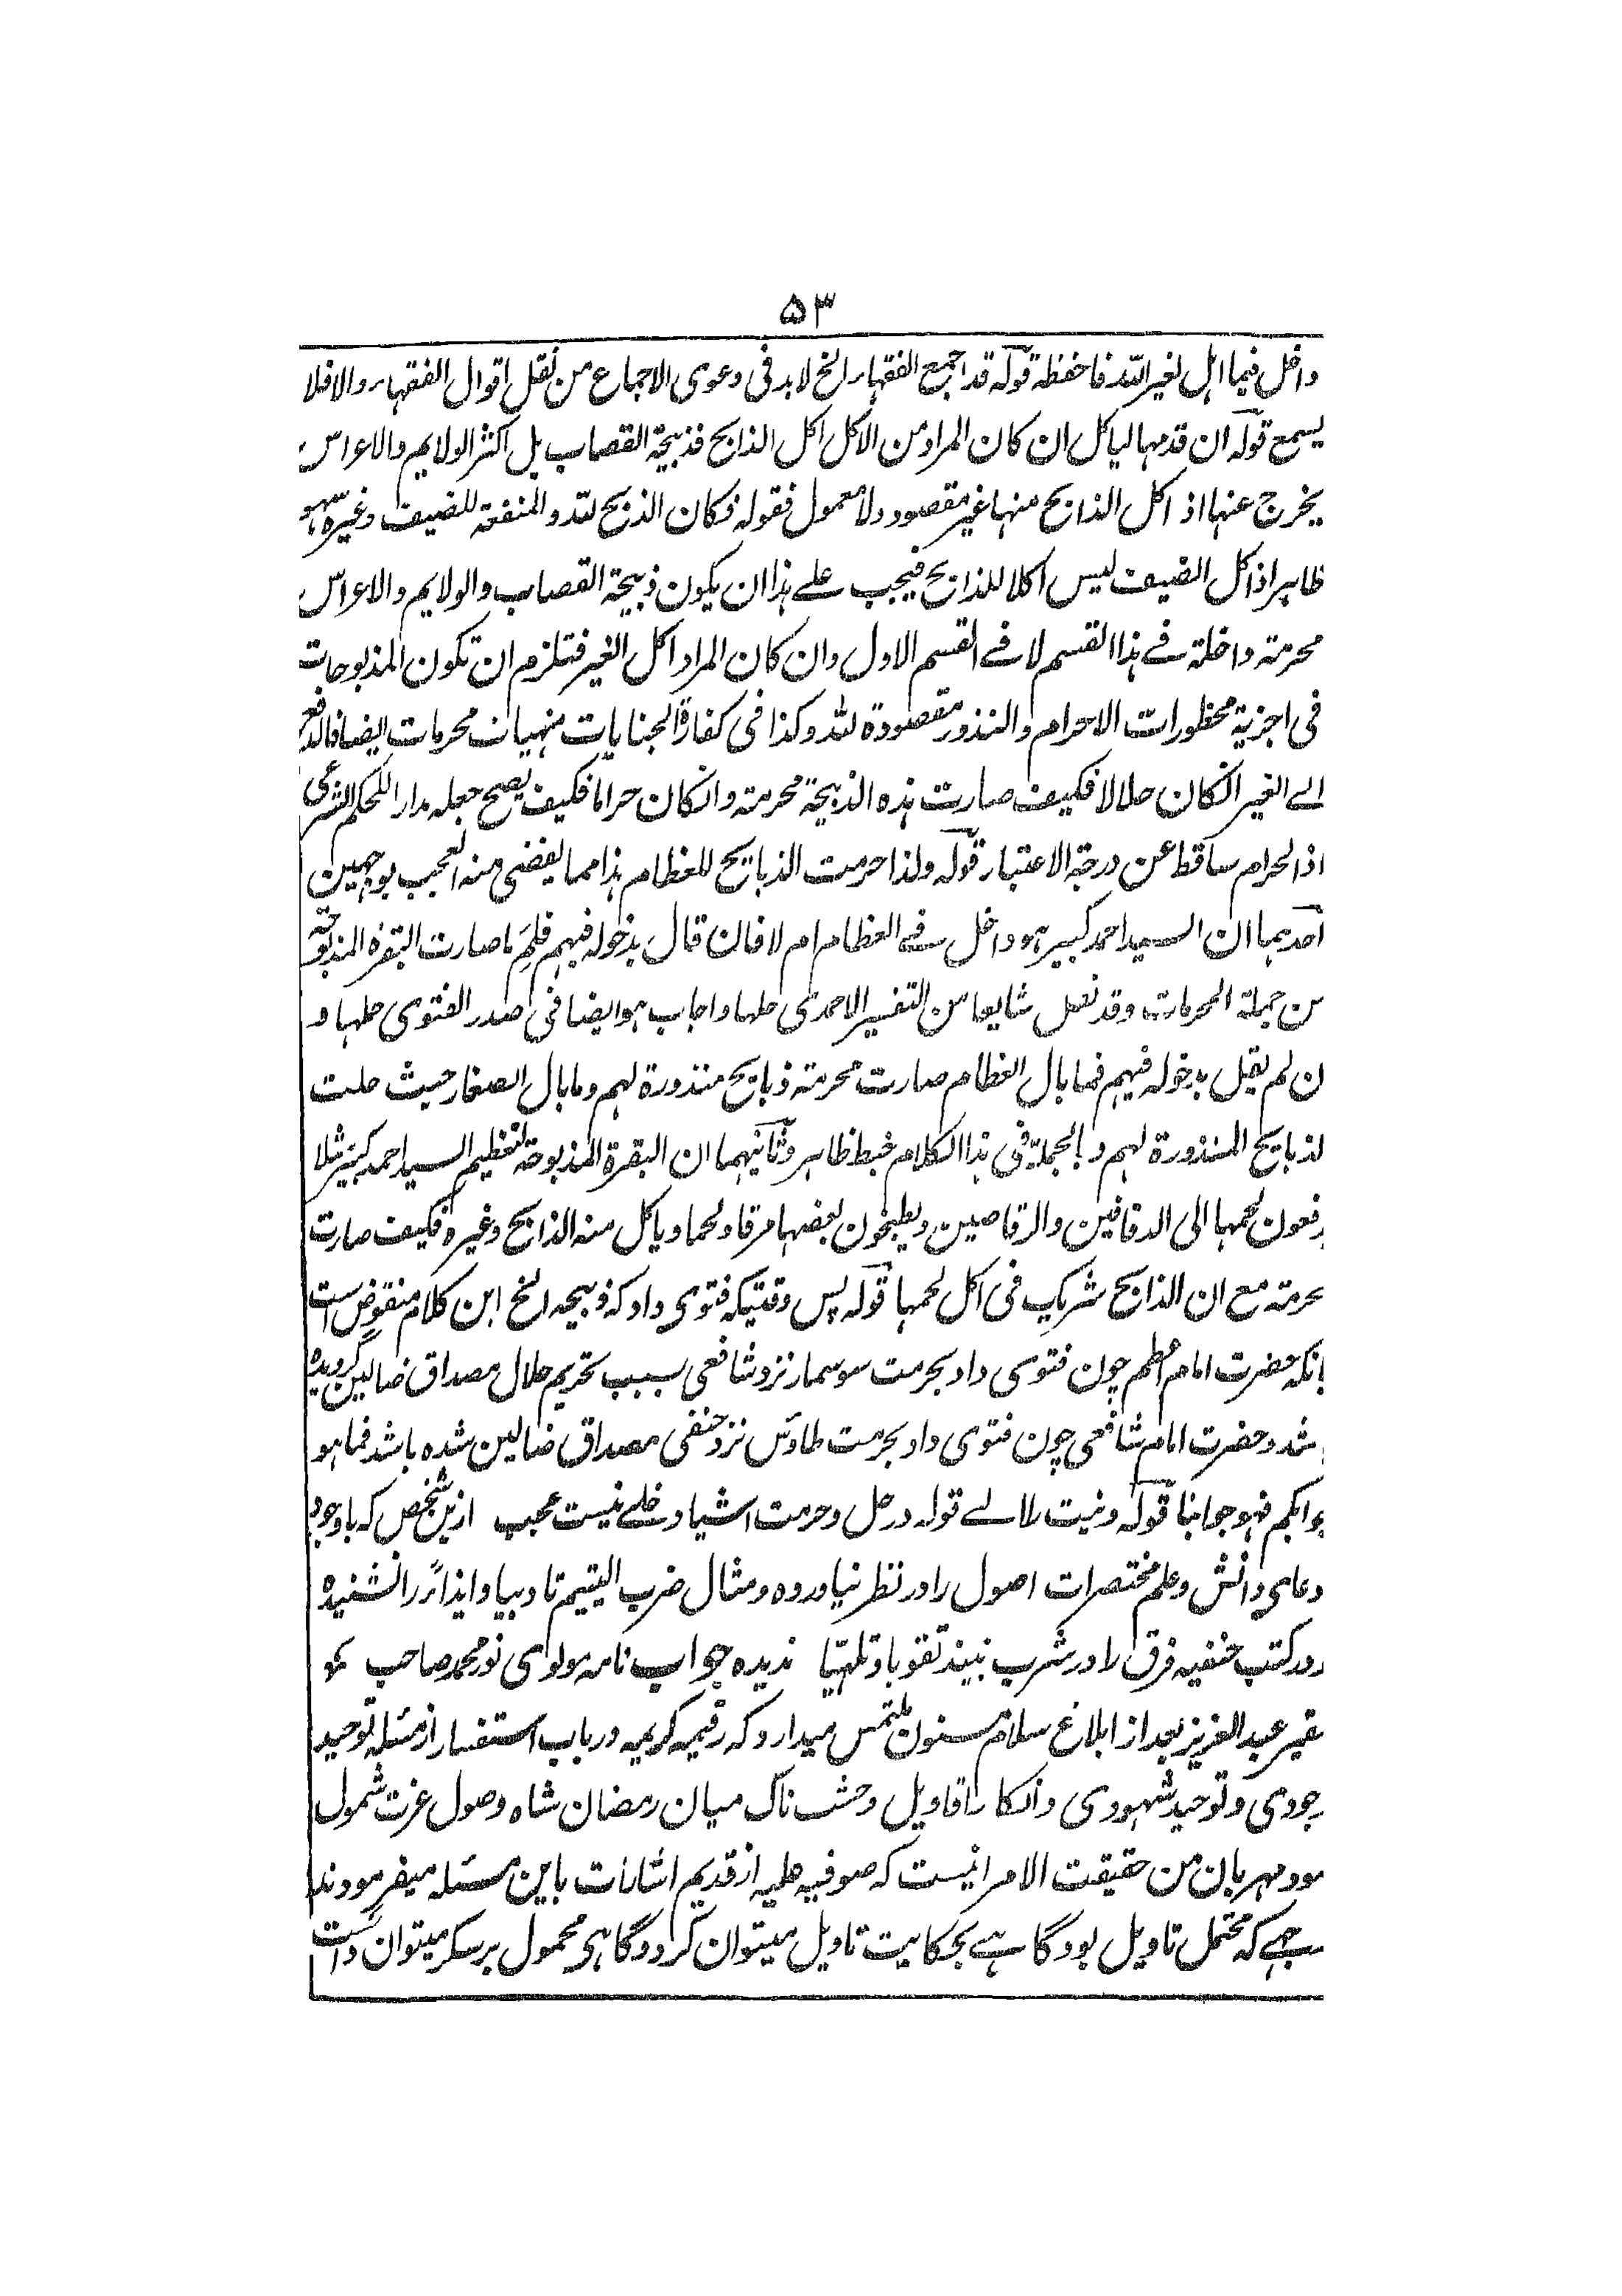 ۵۳
داخل فیما اہل لغیر اللہ فاحفظہ قولہ قد اجمع الفقہاء الخ لابد فی دعوی الاجماع من نقل اقوال الفقہاء والا فلا
یسمع قولہ ان قدمہا لیاکل ان کان المراد من الاکل اکل الذابح فذبیحۃ القصاب بل اکثر الولایم والاعراس
یخرج عنہا اذ اکل الذابح منہا غیر مقصود ولا معمول فقولہ فکان الذبح للہ والمنفعۃ للضیف وغیرہ سہو
ظاہر اذ اکل الضیف لیس اکلا للذابح فیجب علے ہذا ان یکون ذبیحۃ القصاب والولایم والاعراس
محرمۃ داخلۃ فے ہذا القسم لا فے القسم الاول وان کان المراد اکل الغیر فتلزم ان تکون المذبوحات
فی اجزیۃ محظورات الاحرام والنذور مقصودۃ للہ وکذا فی کفارۃ الجنایات منہیات محرمات ایضا فالدفع
الے الغیر انکان حلالا فکیف صارت ہذہ الذبیحۃ محرمۃ وانکان حراما فکیف یصح جعلہ مدارا للحکم الشرعی
اذ الحرام ساقط عن درجۃ الاعتبار قولہ ولذا حرمت الذبایح للعظام ہذا مما یفضی منہ العجب بوجہین
احدہما ان السید احمد کبیر ہو داخل فے العظام ام لا فان قال بدخولہ فیہم فلم ما صارت البقرہ المذبوحۃ
من جملۃ المحرمات وقد نقل شایعا من التفسیر الاحمدی حلہا واجاب ہو ایضا فی صدر الفتوی حلہا و
ن لم یقل بدخولہ فیہم فما بال العظام صارت محرمۃ ذبایح منذورۃ لہم وما بال الصغار حیث حلت
لذبایح المنذورۃ لہم و بالجملۃ فی ہذا الکلام خبط ظاہر وثانیہما ان البقرۃ المذبوحۃ لتعظیم السید احمد کبیر مثلا
رفعون لحمہا الی الدفافین والرقاصین ویطبخون بعضہا مرقا ولحما ویاکل منہ الذابح وغیرہ فکیف صارت
حرمۃ مع ان الذابح شریک فی اکل لحمہا قولہ پس وقتیکہ فتوی داد کہ ذبیحہ الخ این کلام منقوض است
بانکہ حضرت امام اعظم چون فتوی داد بحرمت سوسمار نزد شافعی بسبب تحریم حلال مصداق ضالین گردیدہ
شد وحضرت امام شافعی چون فتوی داد بحرمت طاؤس نزد حنفی مصداق ضالین شدہ باشد فما ہو
جوابکم فہو جوابنا قولہ ونیت رلالے قولہ در حل وحرمت اشیا دخلے نیست عجب ازین شخص کہ باوجود
دعاے دانش وعلم مختصرات اصول را در نظر نیاوردہ ومثال ضرب الیتیم تادیبا وایذاء را نشنیدہ
ودر کتب حنفیہ فرق را در شرب نبیذ تقویا وتلہیا ندیدہ جواب نامہ مولوی نور محمد صاحب
فقیر عبد العزیز بعد از ابلاغ سلام مسنون ملتمس میدارد کہ رقیمہ کریمہ در باب استفسار از مسئلہ توحید
وجودی وتوحید شہودی وانکار اقاویل وحشت ناک میان رمضان شاہ وصول عزت شمول
نمود مہربان من حقیقت الامر اینست کہ صوفیہ علیہ از قدیم اشارات باین مسئلہ میفرمودند
بوجہے کہ محتمل تاویل بود گاہے بحکایت تاویل میتوان کرد وگاہے محمول بر سکر میتوان داشت